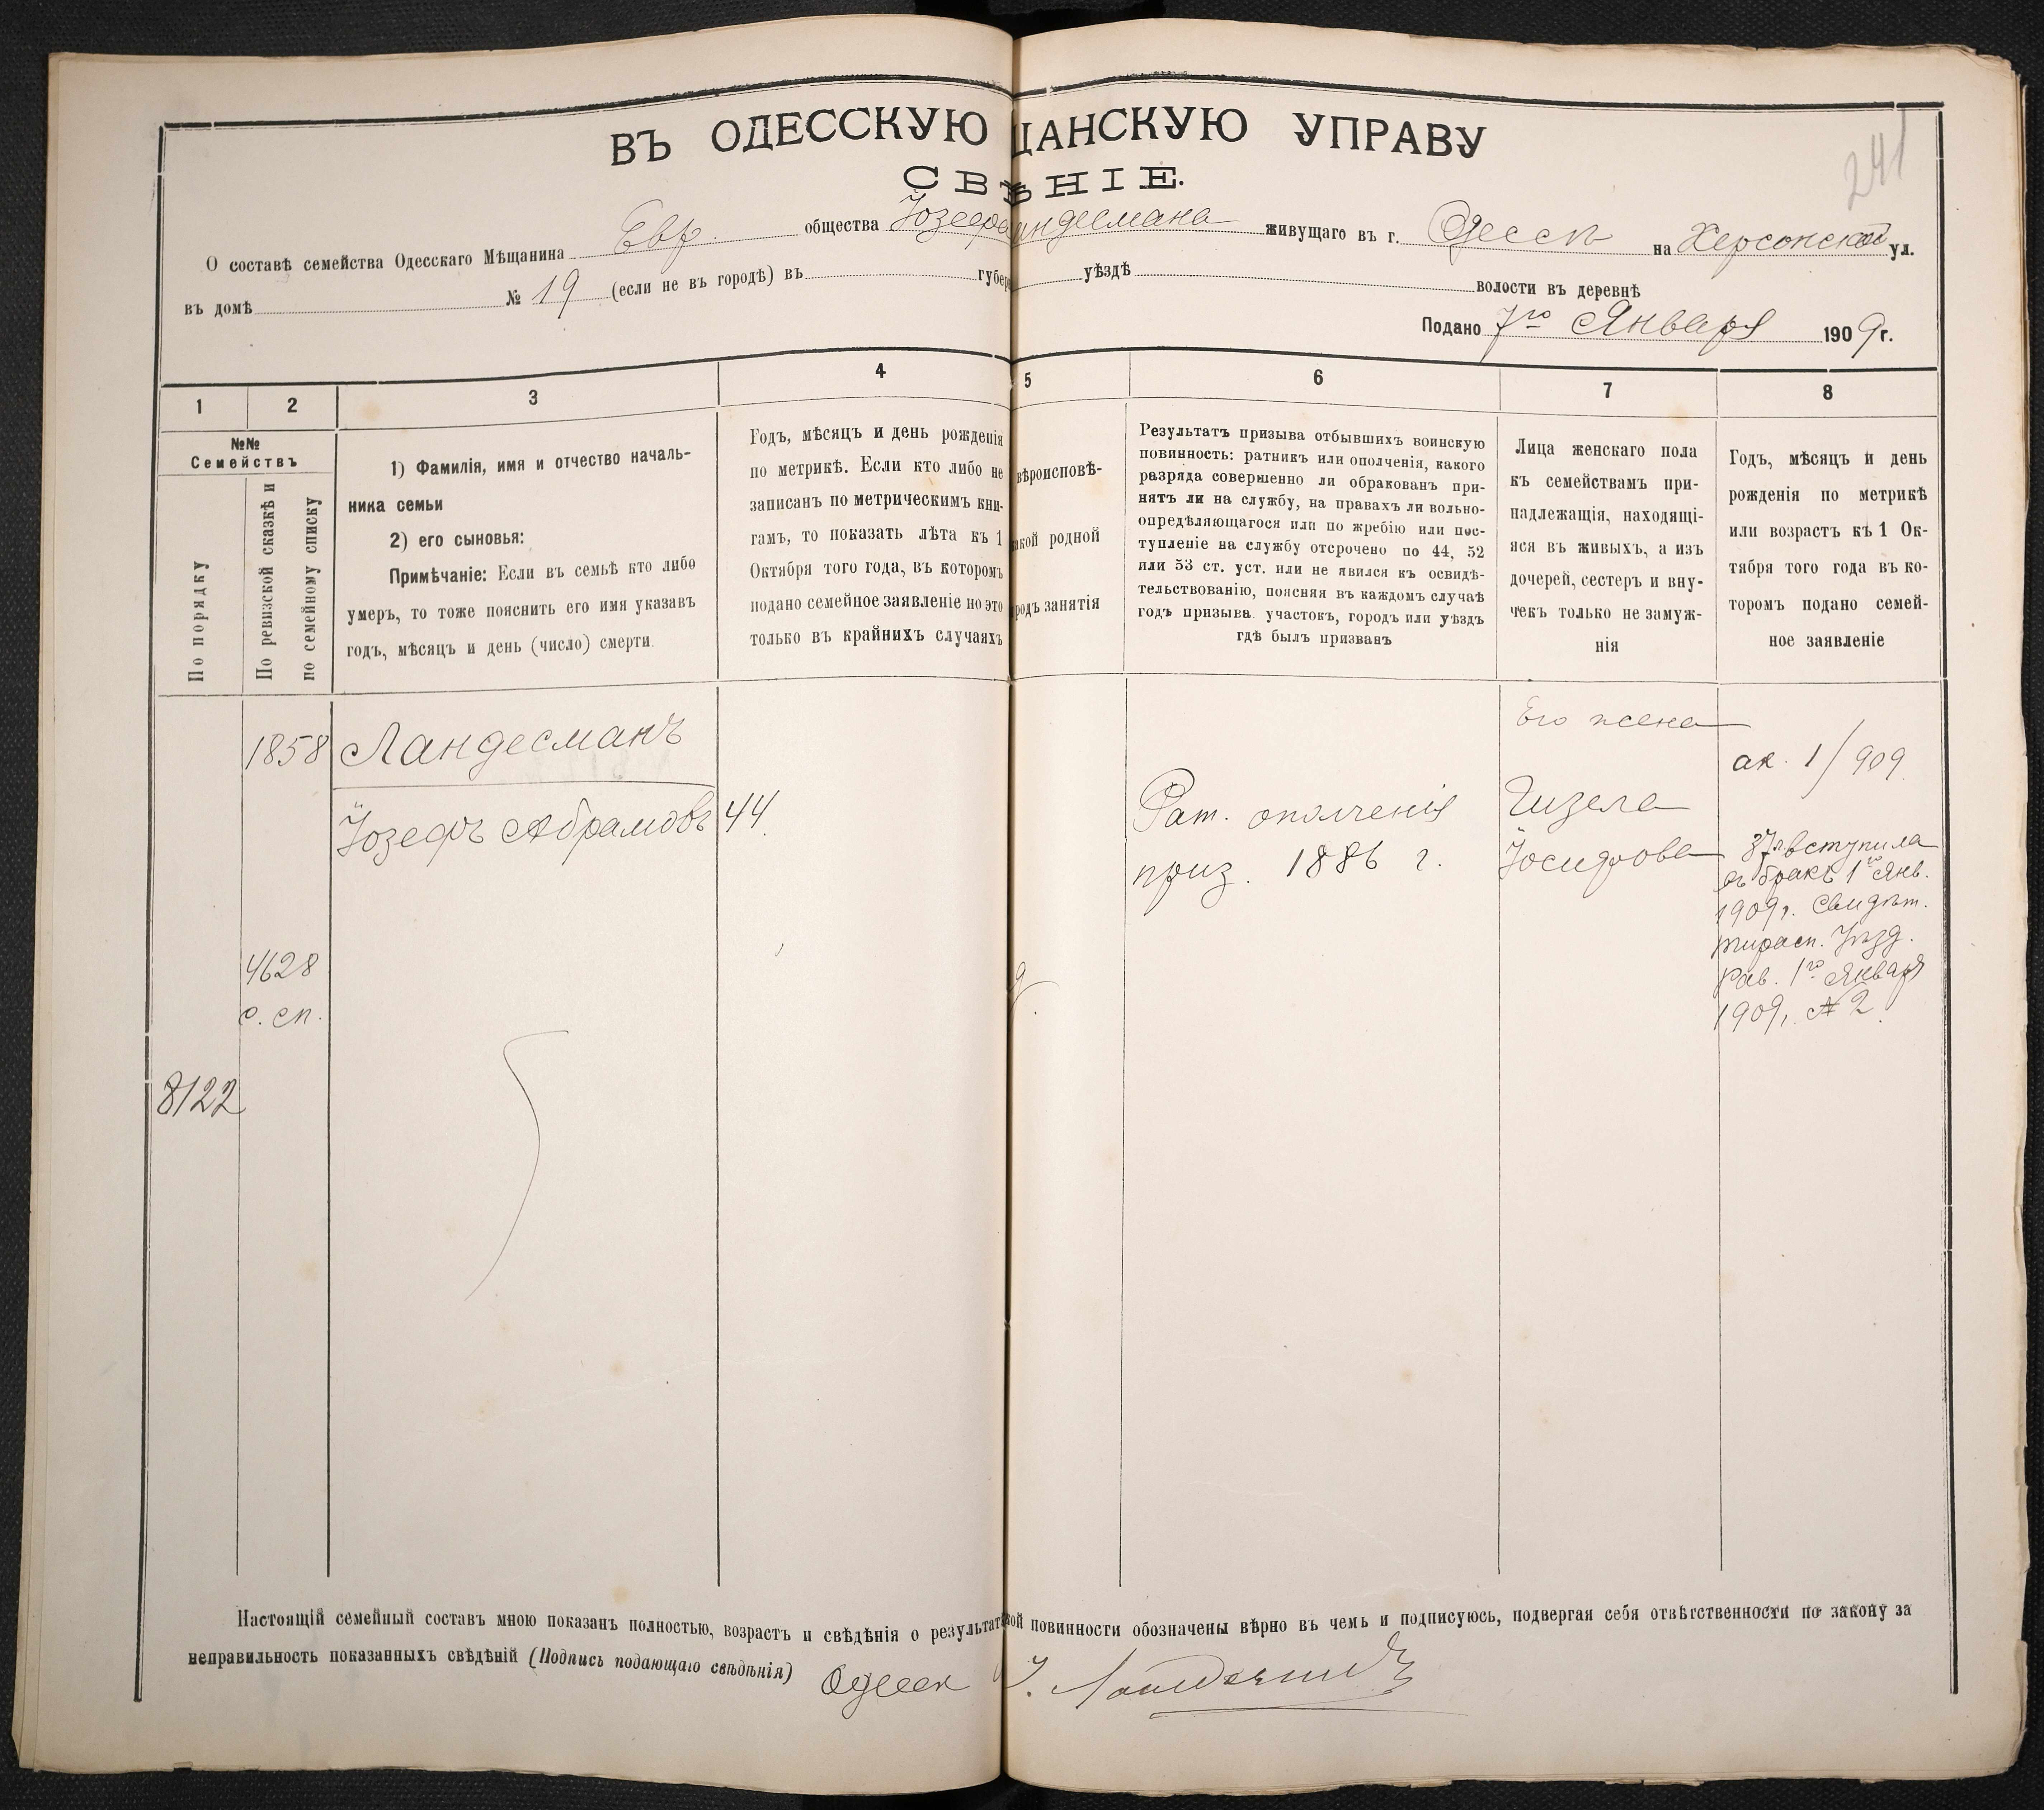 ВЪ ОДЕССКУЮ ЩАНСКУЮ УПРАВУ
СВѢНІЕ.
241
О составѣ семейства Одесскаго Мѣщанина Евр. общества Іозефа ндесмана живущаго въ г. Одессѣ на Херсонской ул.
въ домѣ № 19 (если не въ городѣ) въ губер уѣздѣ волости въ деревнѣ
Подано 7го Января 1909 г.
1 2 3 4 5 6 7 8
№№
Семействъ
По порядку
По ревизской сказкѣ и
по семейному списку
1) Фамилія, имя и отчество началь-
ника семьи
2) его сыновья:
Примѣчаніе: Если въ семьѣ кто либо
умеръ, то тоже пояснить его имя указавъ
годъ, мѣсяцъ и день (число) смерти.
Годъ, мѣсяцъ и день рожденія
по метрикѣ. Если кто либо не
записанъ по метрическимъ кни-
гамъ, то показать лѣта къ 1
Октября того года, въ которомъ
подано семейное заявленіе но это
только въ крайнихъ случаяхъ
вѣроисповѣ-
акой родной
родъ занятія
Результатъ призыва отбывшихъ воинскую
повинность: ратникъ или ополченія, какого
разряда совершенно ли обракованъ при-
нятъ ли на службу, на правахъ ли вольно-
опредѣляющагося или по жребію или пос-
тупленіе на службу отсрочено по 44, 52
или 53 ст. уст. или не явился къ освидѣ-
тельствованію, поясняя въ каждомъ случаѣ
годъ призыва. участокъ, городъ или уѣздъ
гдѣ былъ призванъ
Лица женскаго пола
къ семействамъ при-
надлежащія, находящі-
яся въ живыхъ, а изъ
дочерей, сестеръ и вну-
чекъ только не замуж-
нія
Годъ, мѣсяцъ и день
рожденія по метрикѣ
или возрастъ къ 1 Ок-
тября того года въ ко-
торомъ подано семей-
ное заявленіе
1858
4628
с. сп.
8122
Ландесманъ
Іозефъ Абрамовъ
44
Рат. ополченія
приз. 1886 г.
Его жена
Гизела
Іосифова
ак. 1/909
37 л вступила
въ бракъ 1го Янв.
1909 г. Свидѣт.
тирасп. Уѣзд.
Рав. 1го Января
1909 г. № 2
Настоящій семейный составъ мною показанъ полностью, возрастъ и свѣдѣнія о результат ой повинности обозначены вѣрно въ чемъ и подписуюсь, подвергая себя отвѣтственности по закону за
неправильность показанныхъ свѣдѣній (Подпись подающаго свѣдѣнія) І. Ландесманъ